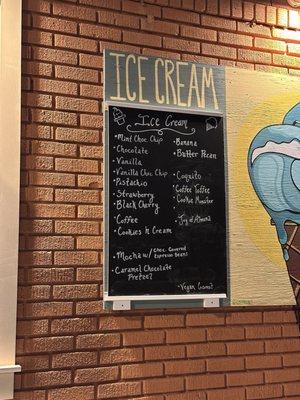 ICE CREAM
Ice Cream
• Mint Choc Chip
• Chocolate
• Vanilla
• Vanilla Choc Chip
• Pistachio
• Strawberry
• Black Cherry
• Coffee
• Cookies n Cream
• Banana
• Butter Pecan
• Coquito
• Coffee Toffee
• Cookie Monster
• Joy of Almond
• Mocha w/ Choc Covered Espresso Beans!
• Caramel Chocolate
Pretzel!
• Vegan